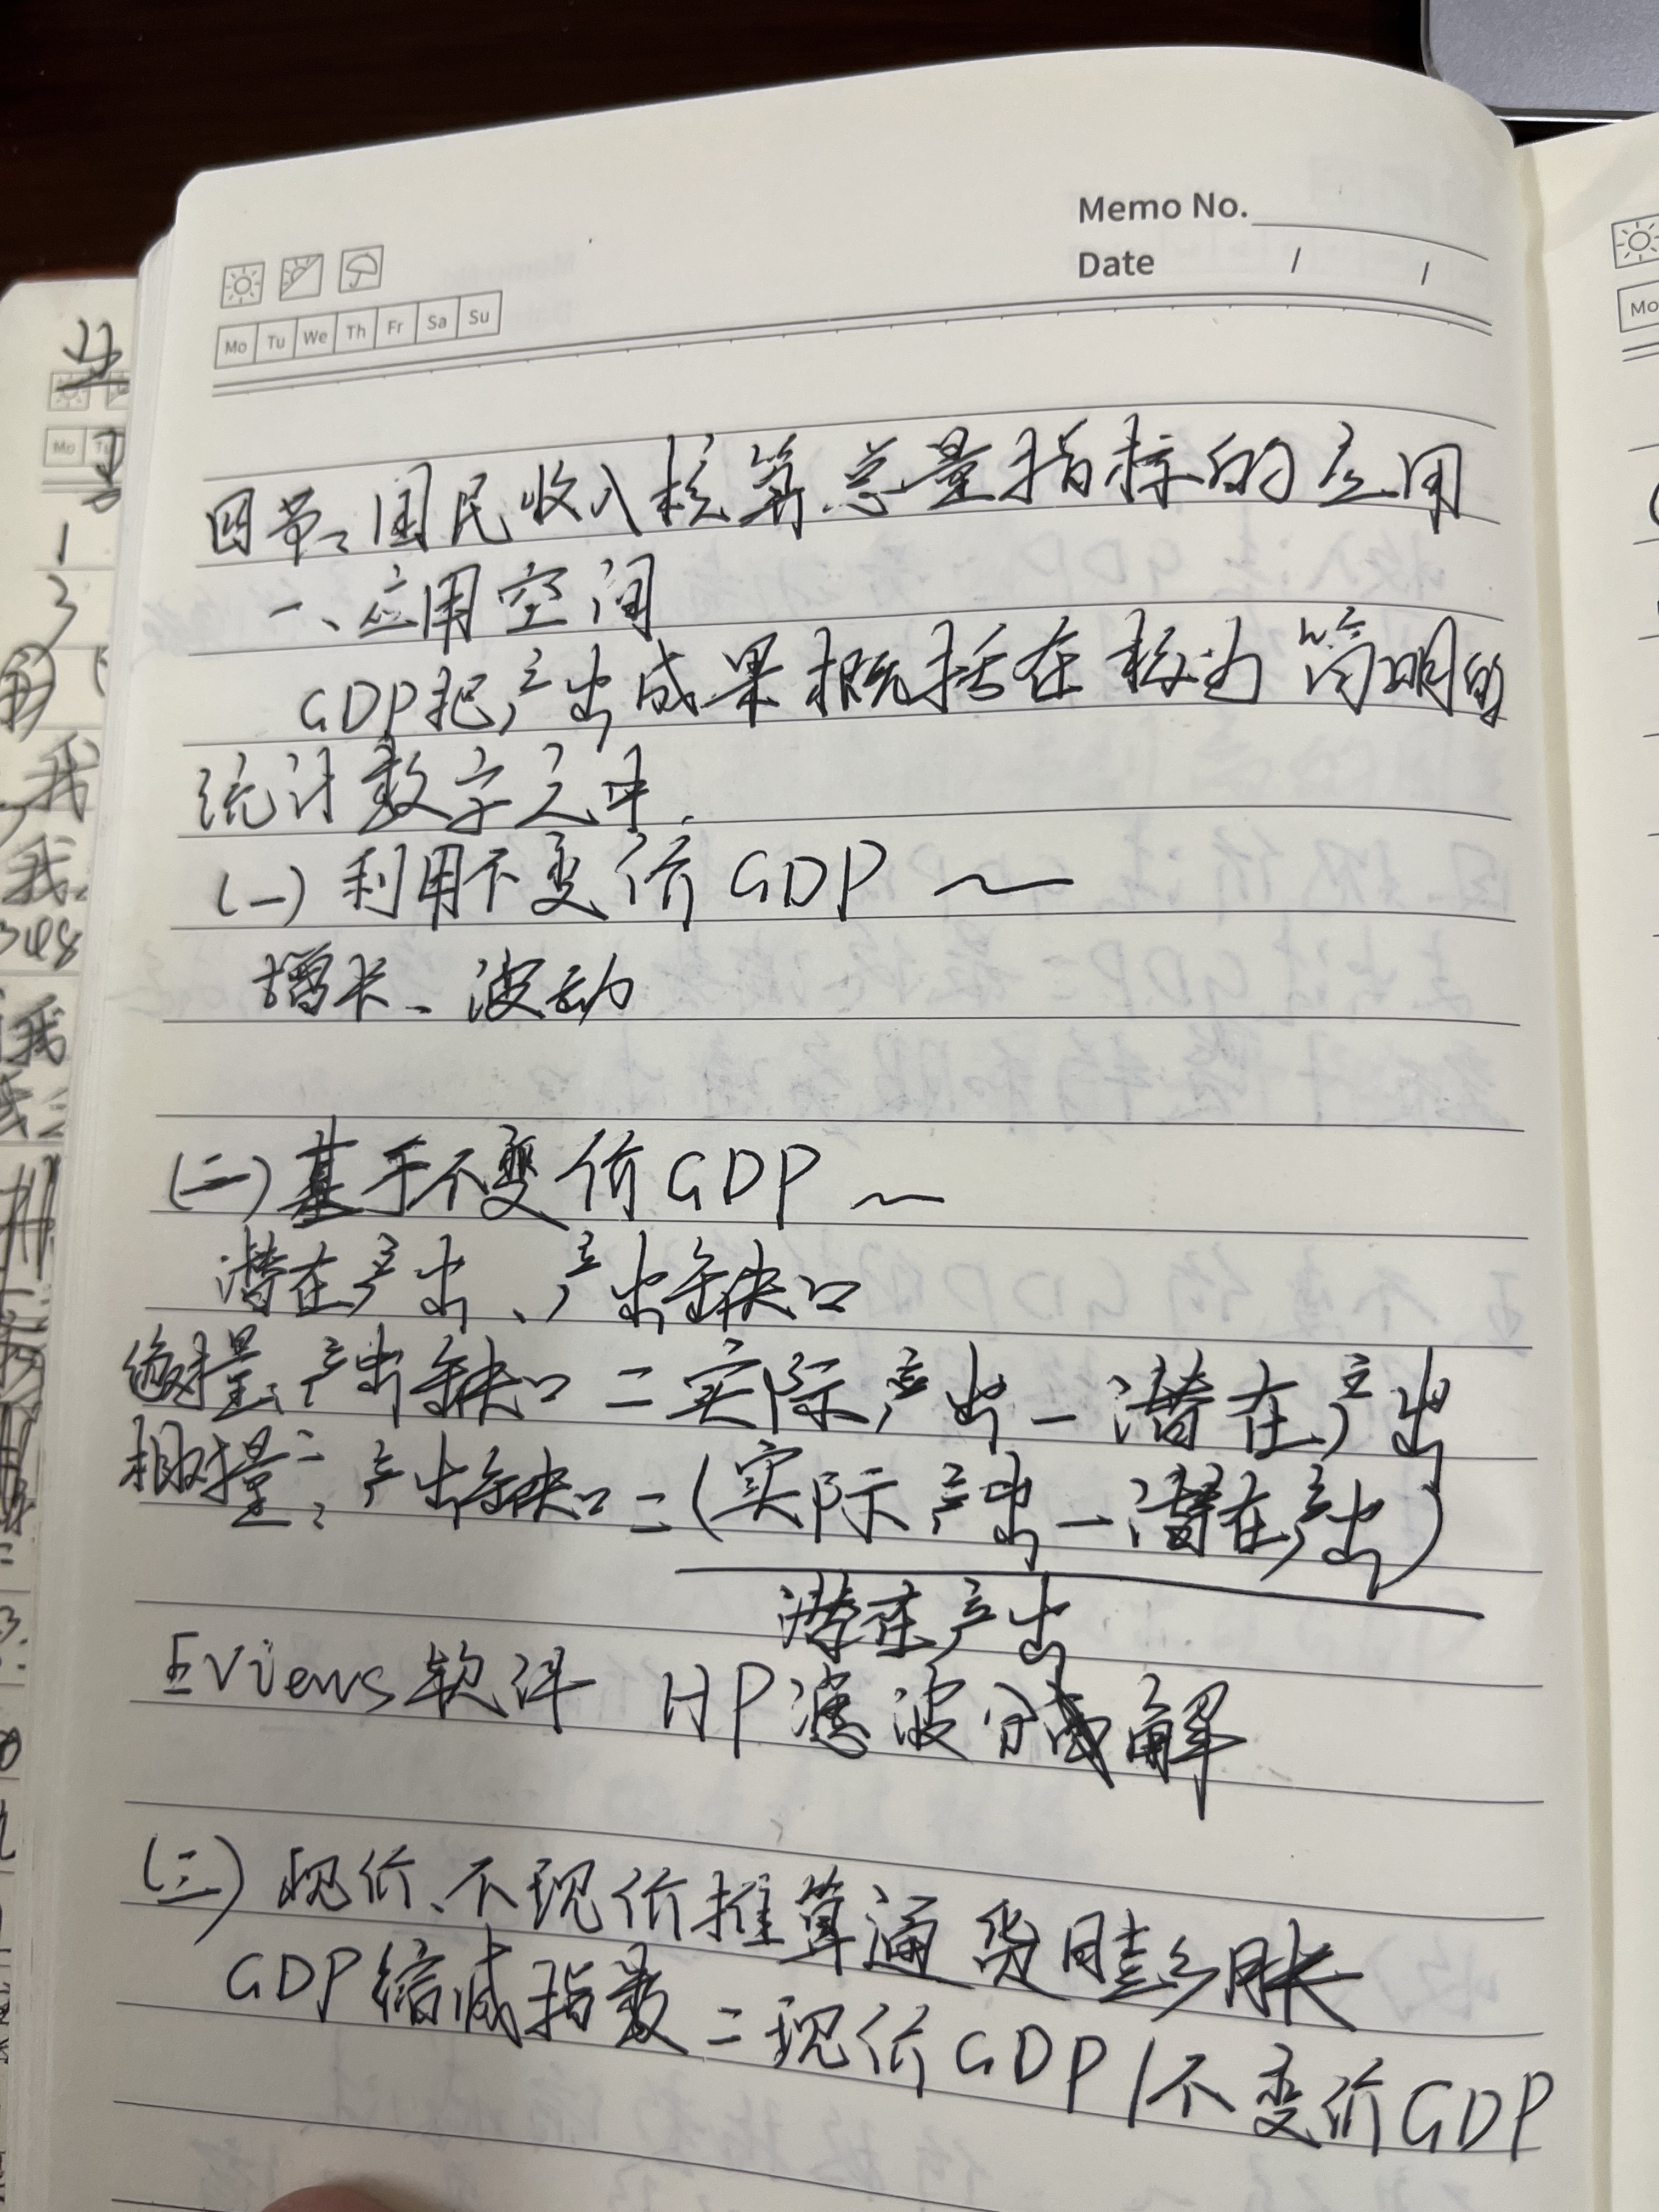 Memo No.
Date / /
Mo Tu We Th Fr Sa Su
四节、国民收入核算总量指标的应用
一、应用空间
GDP把产出成果概括在极为简明的
统计数字之中.
(一)利用不变价GDP ~
增长、波动
(二)基于不变价GDP ~
潜在产出、产出缺口
绝对量:产出缺口=实际产出-潜在产出
相对量:产出缺口=(实际产出-潜在产出)
潜在产出
EViews软件 HP滤波分解
(三)现价、不现价推算通货膨胀
GDP缩减指数=现价GDP/不变价GDP